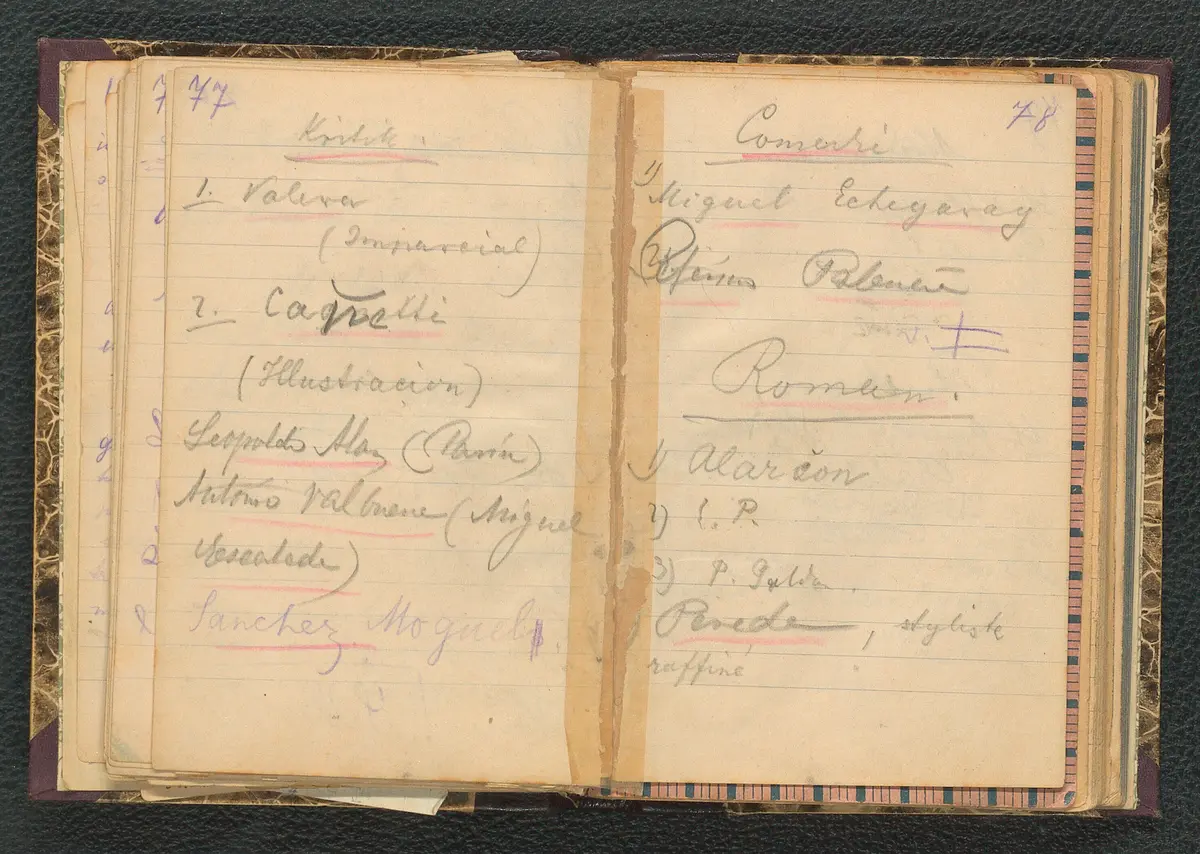 77
Kritik.
1. Valera
(Imparcial)
2.
(Illustracion)
Leopoldo Alas
Antonio Valbuena (Miguel
Escalada)
Sanchez Moguel
78
Comedi
1) Miguel Echegaray
2)
Roman.
1) Alarcon
2) E. P.
3) P. Galdos.
Pereda, stylist
raffiné